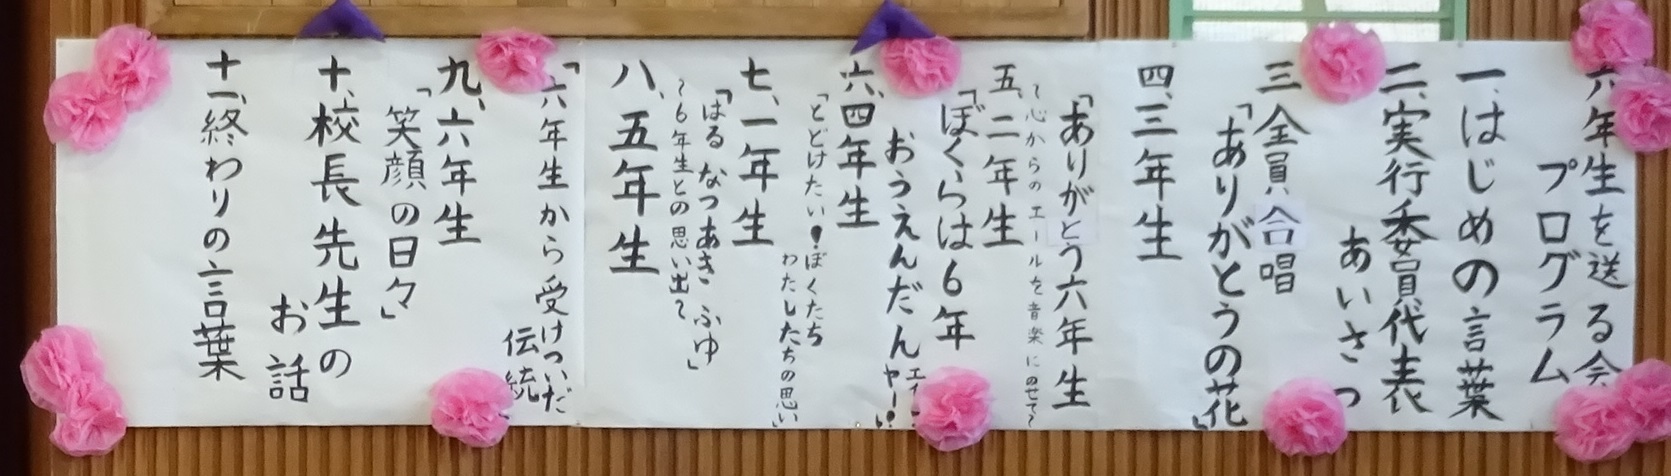 六年生を送る会
プログラム
一、はじめの言葉
二、実行委員代表
あいさつ
三、全員合唱
「ありがとうの花」
四、三年生
「ありがとう六年生
～心からのエールを音楽にのせて～
五、二年生
「ぼくらは6年
おうえんだんエイ
ヤー!」
六、四年生
「とどけたい!ぼくたち
わたしたちの思い」
七、一年生
「はるなつあきふゆ」
～6年生との思い出～
八、五年生
「六年生から受けついだ
伝統」
九、六年生
「笑顔の日々」
十、校長先生の
お話
十一、終わりの言葉